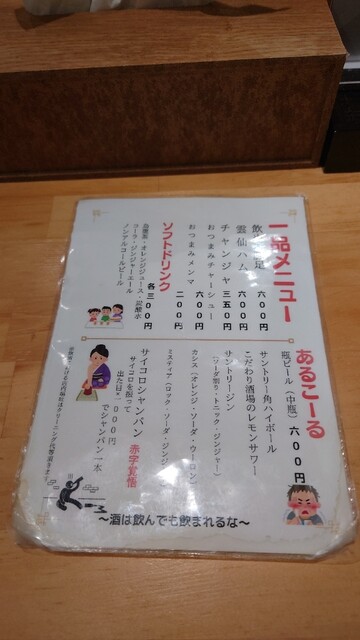 一品メニュー
六〇〇円
雲仙ハム 六〇〇円
チャンジャ 三五〇円
おつまみチャーシュー 六〇〇円
おつまみメンマ 二〇〇円
ソフトドリンク 各三〇〇円
烏龍茶・オレンジジュース・炭酸水
コーラ・ジンジャーエール
ノンアルコールビール
あるこーる
瓶ビール(中瓶)六〇〇円
サントリー角ハイボール
こだわり酒場のレモンサワー
サントリージン
(ソーダ割り・トニック・ジンジャー)
カシス(オレンジ・ソーダ・ウーロン)
ミスティア(ロック・ソーダ・ジンジャ
サイコロシャンパン 赤字覚悟
サイコロを振って
出た目×
〇〇〇円
でシャンパン一本
クリーニング代等頂きます
〜酒は飲んでも飲まれるな〜